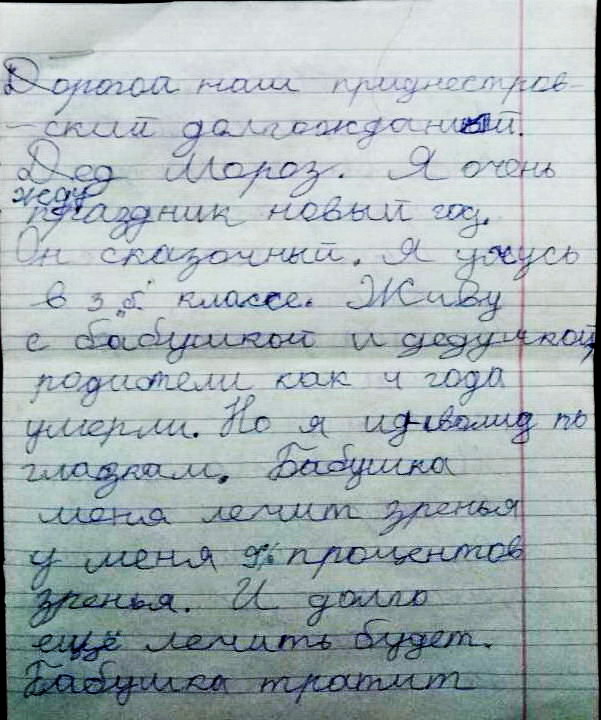 Дорогой наш приднестров-
-ский долгожданный.
Дед Мороз. Я очень
жду
праздник новый год.
Он сказочный. Я учусь
в 3 „б" классе. Живу
с бабушкой и дедушкой,
родители как 4 года
умерли. Но я идволид по
глазкам. Бабушка
меня лечит зренья
у меня % процентов
зренья. И долго
ещё лечить будет.
Бабушка тратит